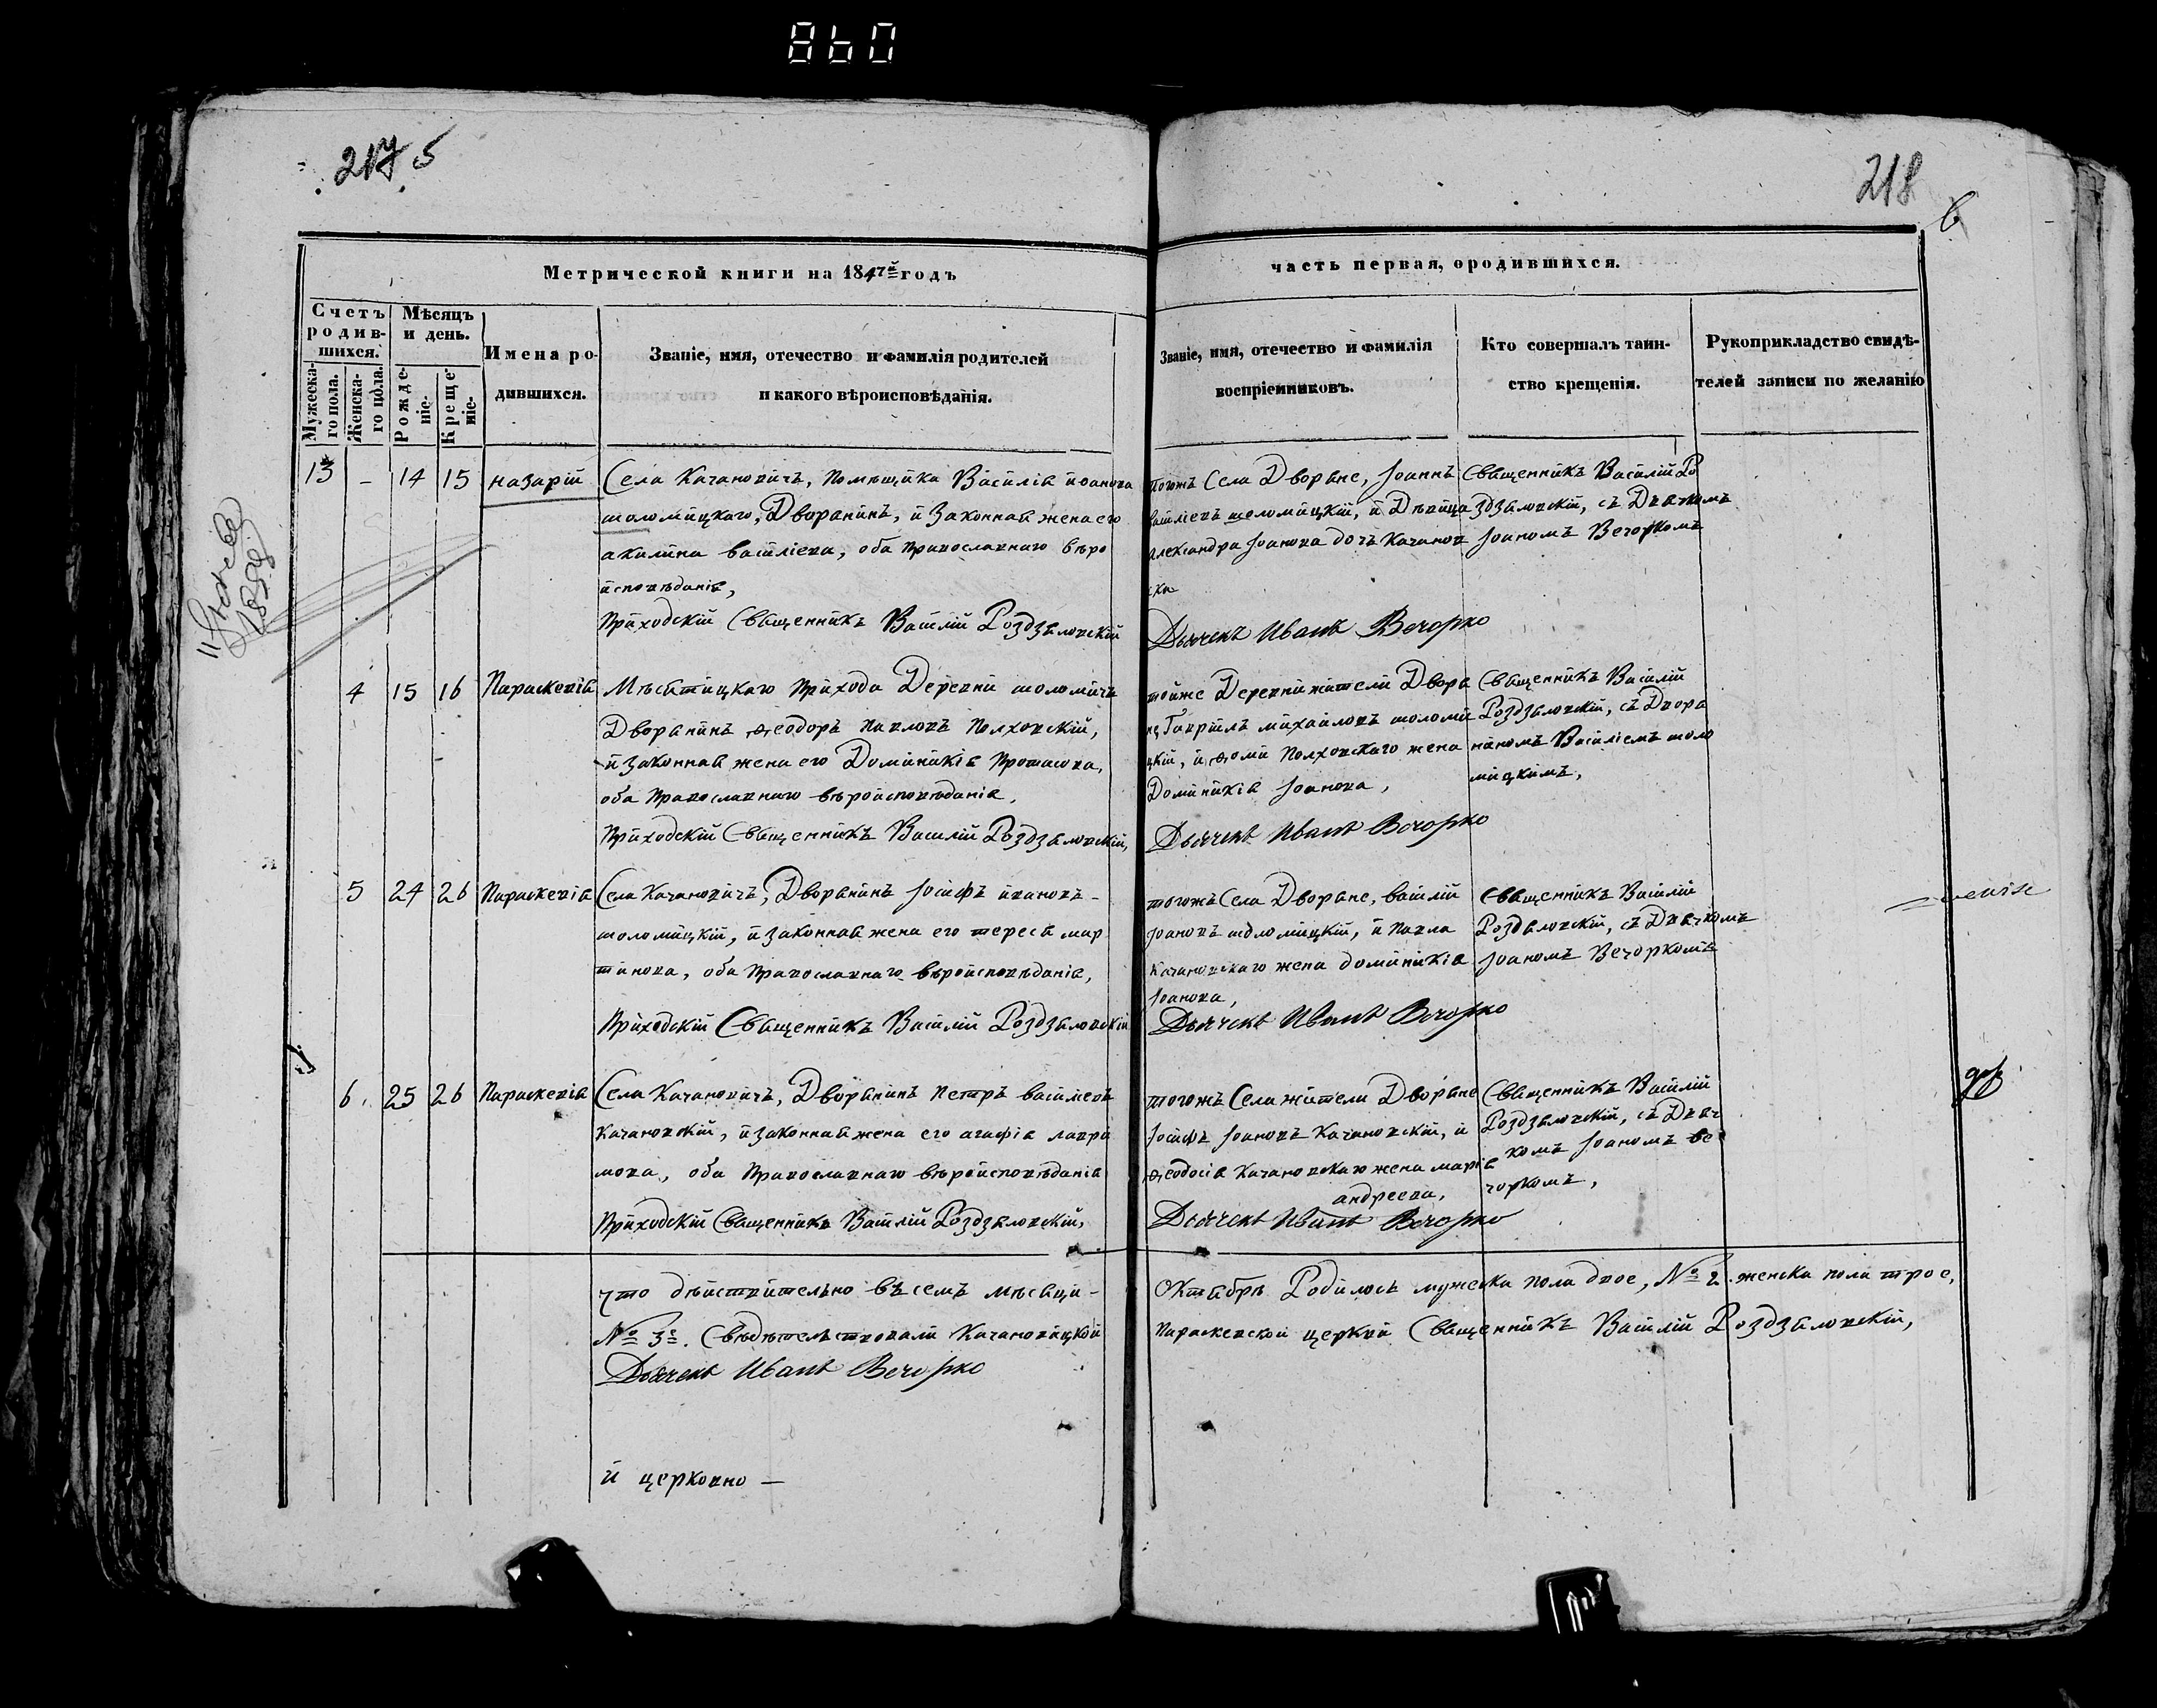 860
217 5
218
6
Метрической книги на 1847й годъ
часть первая, ородившихся.
Счетъ родив-шихся.
Мужеска-го пола.
Женска-го пола.
Мѣсяцъ и день.
Рожде-ніе.
Креще-ніе.
Имена ро-дившихся.
Званіе, имя, отечество и фамилія родителей
и какого вѣроисповѣданія.
Званіе, имя, отечество и фамилія
воспріемниковъ.
Кто совершалъ таин-
ство крещенія.
Рукоприкладство свидѣ-
телей записи по желанію
13 - 14 15 назарій
Села Качановичъ, Помѣщика Василія іоанова
шоломицкаго, Дворанинъ, и Законная жена его
акилина василіева, оба православнаго вѣро
исповѣданія,
Приходскій Священникъ Василій Роздяловскій
тогожъ Села Дворяне, Іоаннъ
василіевъ шоломицкій, и Дѣвица
александра Іоанова дочъ Качанов
ска
Дьячекъ Иванъ Вечорко
Священникъ Василій Ро
здзяловскій, съ Дьячкомъ
Іоаномъ Вечоркомъ
4 15 16 Параскевія
Мѣсятицкаго Прихода Деревни шоломичъ
Дворянинъ Ѳеодоръ Павловъ Полховскій,
и законная жена его Доминикія Протасова,
оба Православнаго вѣроисповѣданія,
Приходскій Священникъ Василій Роздзяловскій,
тойже Деревни жители Дворя
нц Гавріилъ михайловъ шоломи
цкій, и Ѳомы Полховскаго жена
Доминикія Іоанова,
Дьячекъ Иванъ Вечорко
Священникъ Василій
Роздзяловскій, съ Дворя
ниномъ Василіемъ шоло
мицкимъ,
5 24 26 Параскевія
Села Качановичъ, Дворянинъ Іосифъ ивановъ -
шоломицкій, и законная жена его тереса мар
тинова, оба Православнаго вѣроисповѣданія,
Приходскій Священникъ Василій Роздзяловскій
тогожъ Села Дворяне, василій
Іоановъ шоломицкій, и Павла
Качановскаго жена доминикія
Іоанова,
Дьячекъ Иванъ Вечорко
Священникъ Василій
Роздяловскій, съ Дьячкомъ
Іоаномъ Вечоркомъ
6. 25 26 Параскевія
Села Качановичъ, Дворянинъ Петръ василіевъ
Качановскій, и законная жена его агафія лаври
мова, оба Православнаго вѣроисповѣданія
Приходскій Священникъ Василій Роздзяловскій,
тогожъ Села жители Дворяне
Іосифъ Іоановъ Качановскій, и
Ѳеодосія Качановскаго жена марія
андреева,
Дьячекъ Иванъ Вечорко
Священникъ Василій
Роздзяловскій, съ Дьяч
комъ Іоаномъ ве
чоркомъ,
что дѣйствительно въ семъ мѣсяци -
№ 3е. Свѣдѣтельствовали Качановицкой
Дьячекъ Иванъ Вечорко
и церковно —
Октябрѣ Родилось мужеска пола двое, № 2. женска пола трое,
Параскевской церкви Священникъ Василій Роздзяловскій,